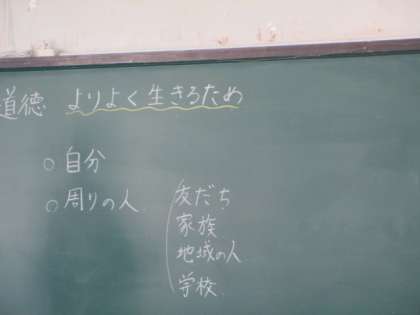 道徳 よりよく生きるため
○自分
○周りの人
友だち
家族
地域の人
学校